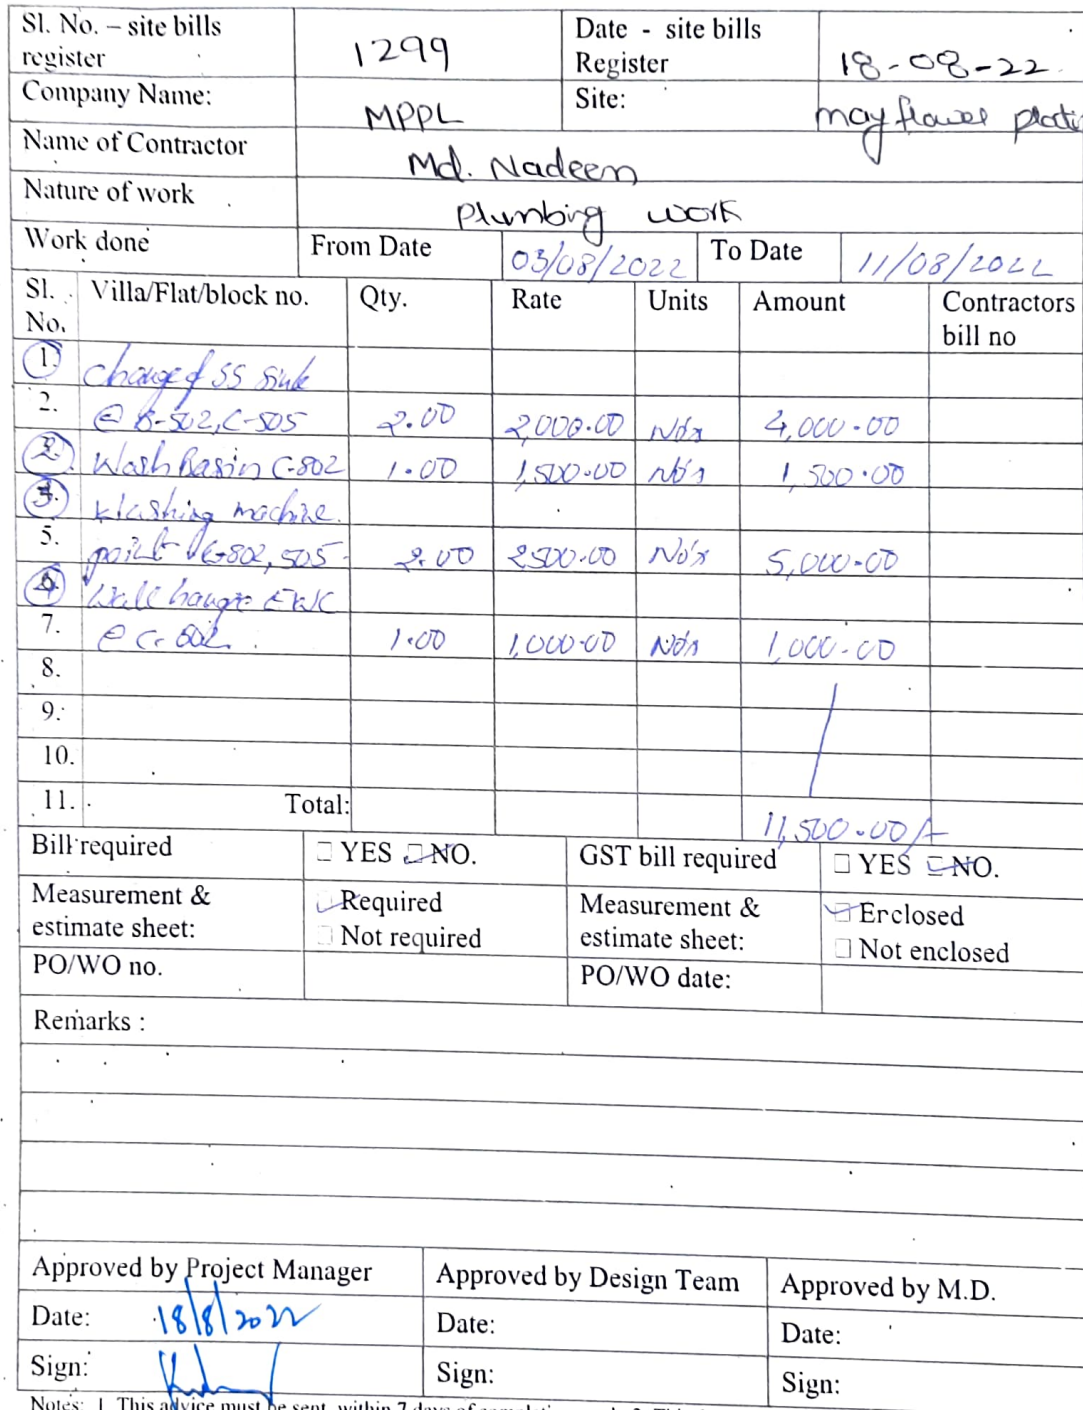 Sl. No. – site bills register 1299 Date - site bills Register 18-08-22
Company Name: MPPL Site: may flower
Name of Contractor Md. Nadeen
Nature of work Plumbing work
Work done From Date 03/08/2022 To Date 11/08/2022
Sl. No. Villa/Flat/block no. Qty. Rate Units Amount Contractors bill no
1. change of SS Sink
2. @ B-502, C-505 2.00 2,000.00 No's 4,000.00
Wash Basin C-802 1.00 1,500.00 No's 1,500.00
Washing machine
5. point C-802, 505 2.00 2500.00 No's 5,000.00
Wall hange EWC
7. @ C-802. 1.00 1,000.00 No's 1,000.00
8.
9.
10.
11. Total: 11,500.00/-
Bill required YES NO. GST bill required YES NO.
Measurement & estimate sheet: Required Not required Measurement & estimate sheet: Enclosed Not enclosed
PO/WO no. PO/WO date:
Remarks :
Approved by Project Manager Approved by Design Team Approved by M.D.
Date: 18/8/2022 Date: Date:
Sign: Sign: Sign:
Notes: 1. This advice must be sent within 7 days of